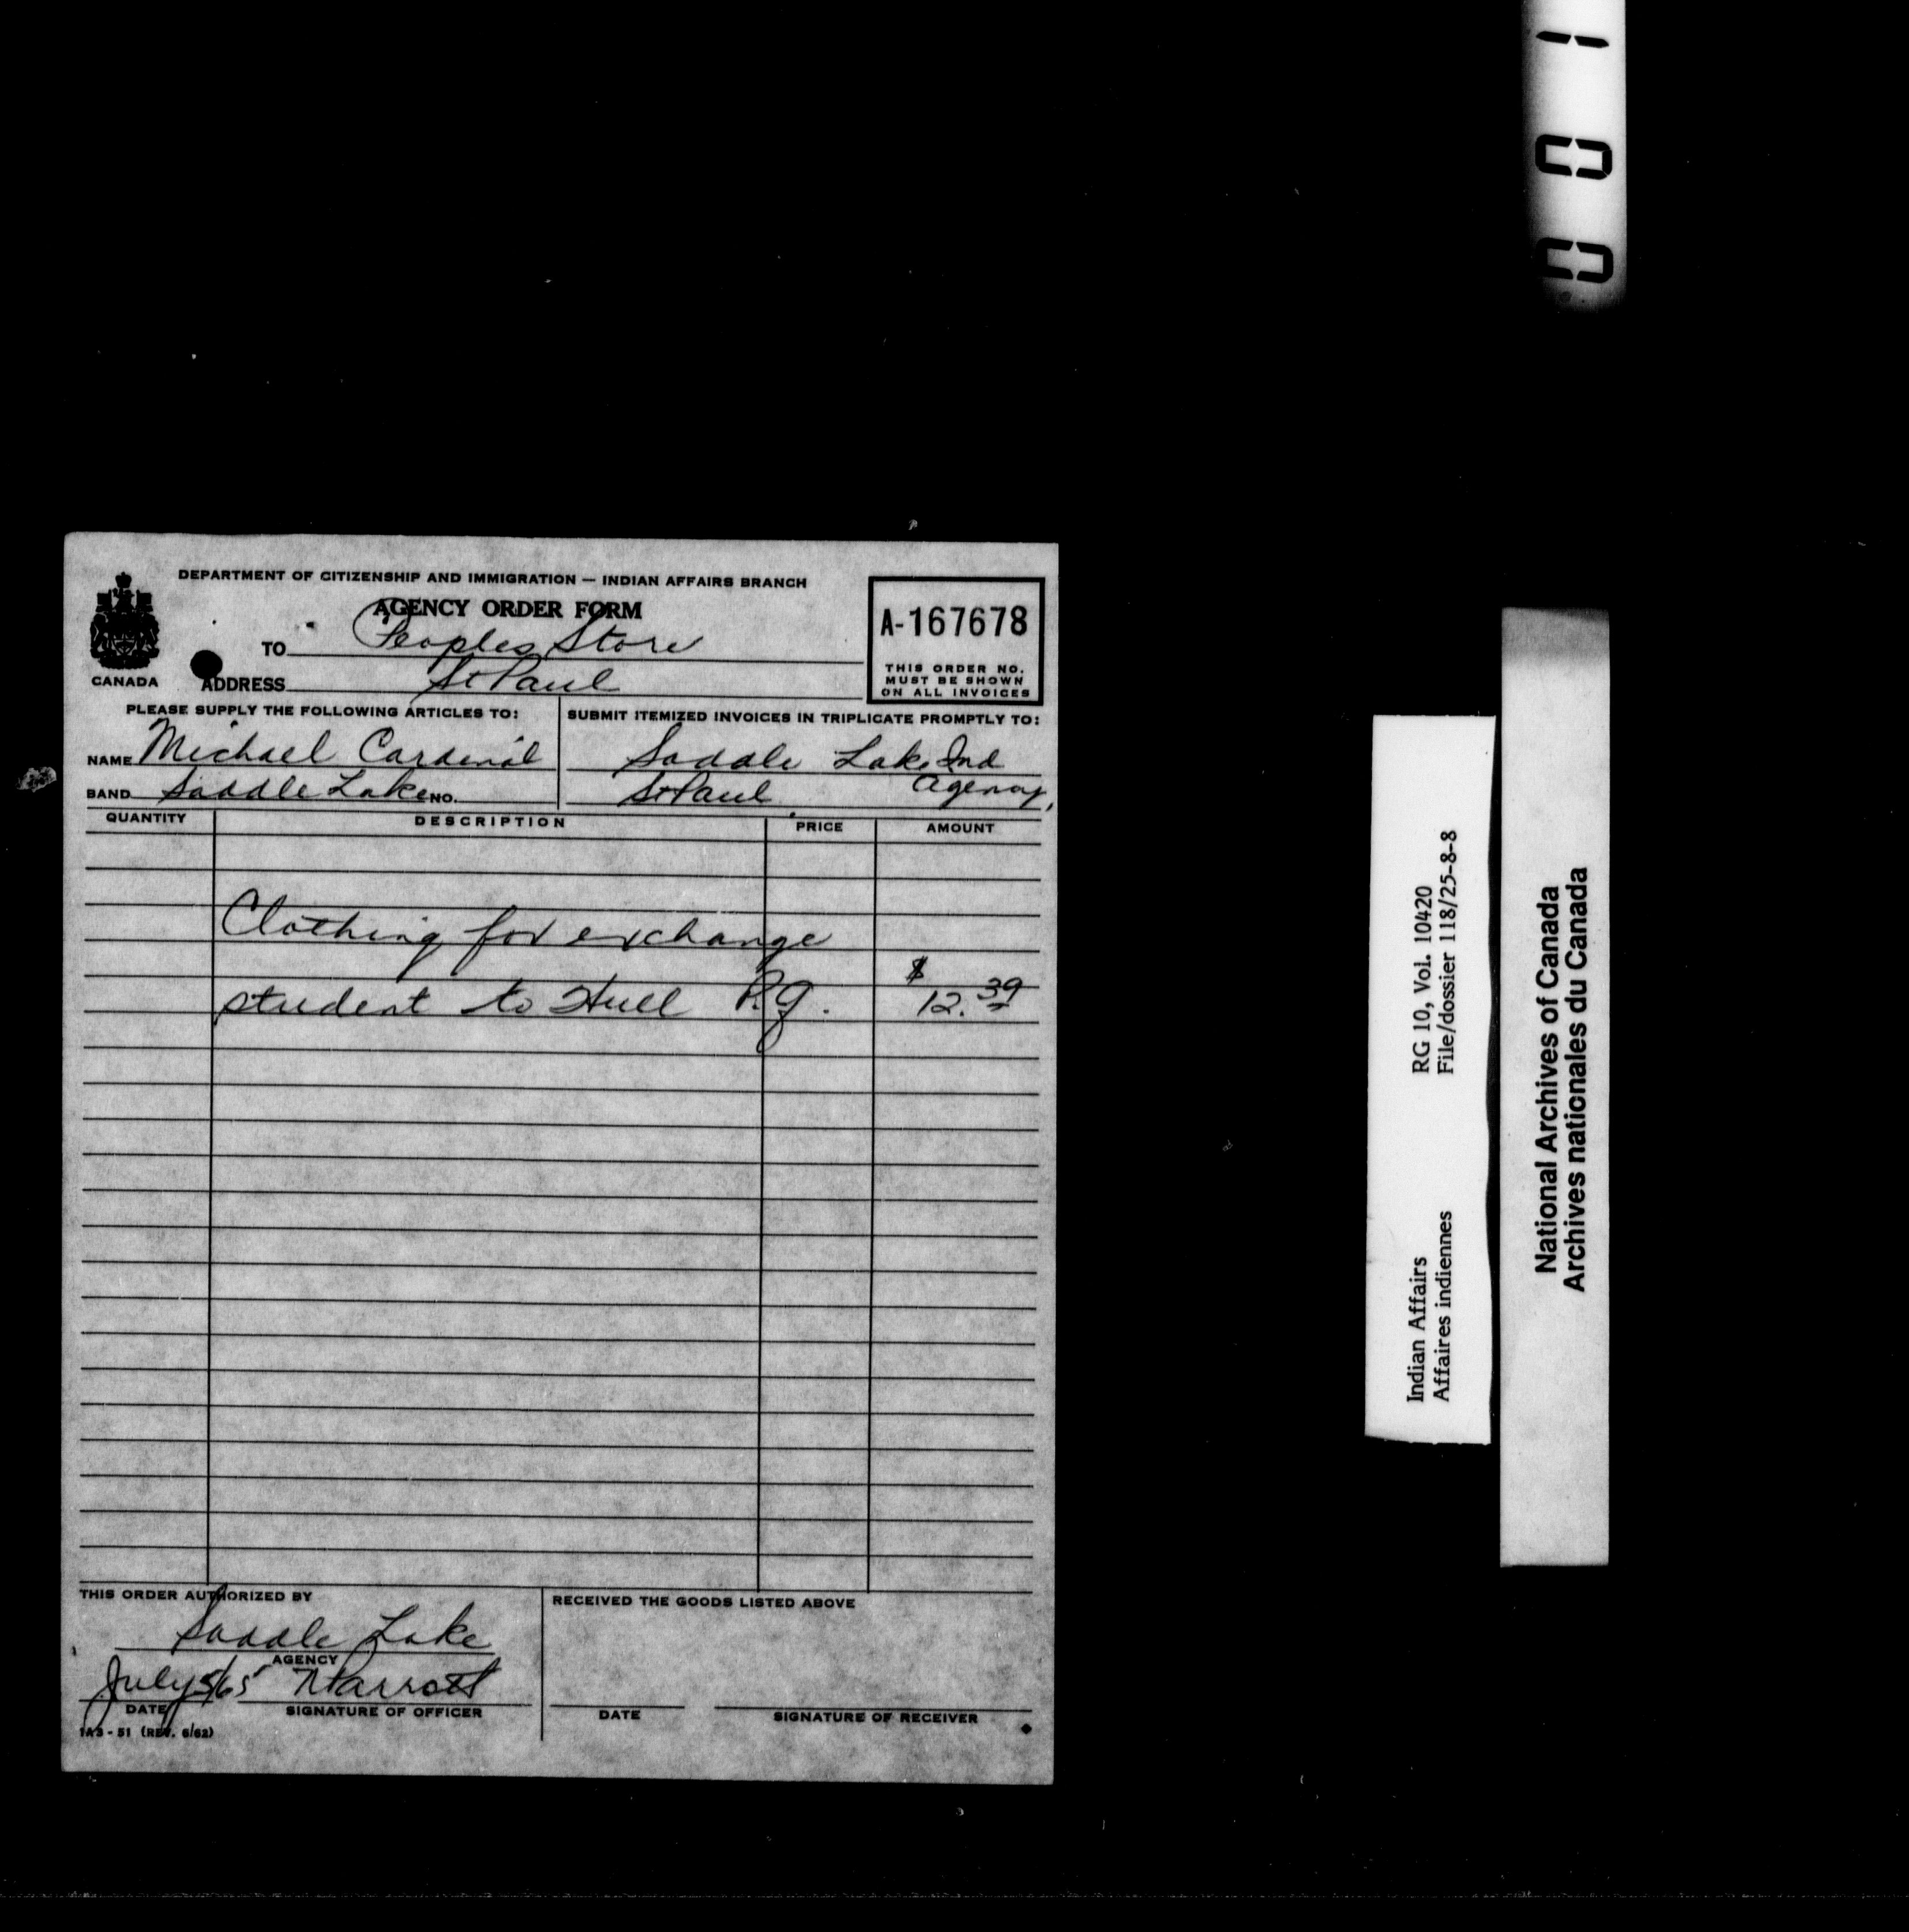 DEPARTMENT OF CITIZENSHIP AND IMMIGRATION — INDIAN AFFAIRS BRANCH
AGENCY ORDER FORM
CANADA
TO Peoples Store
ADDRESS St Paul
A-167678
THIS ORDER NO.
MUST BE SHOWN
ON ALL INVOICES
PLEASE SUPPLY THE FOLLOWING ARTICLES TO:
NAME Michael Cardinal
BAND Saddle Lake NO.
SUBMIT ITEMIZED INVOICES IN TRIPLICATE PROMPTLY TO:
Saddle Lake Ind
St Paul Agency,
QUANTITY DESCRIPTION PRICE AMOUNT
Clothing for exchange
student to Hull P.Q. $12.39
THIS ORDER AUTHORIZED BY
Saddle Lake
AGENCY
July 5/65
DATE SIGNATURE OF OFFICER
1A3-51 (REV. 6/62)
RECEIVED THE GOODS LISTED ABOVE
DATE SIGNATURE OF RECEIVER
Indian Affairs RG 10, Vol. 10420
Affaires indiennes File/dossier 118/25-8-8
National Archives of Canada
Archives nationales du Canada
001